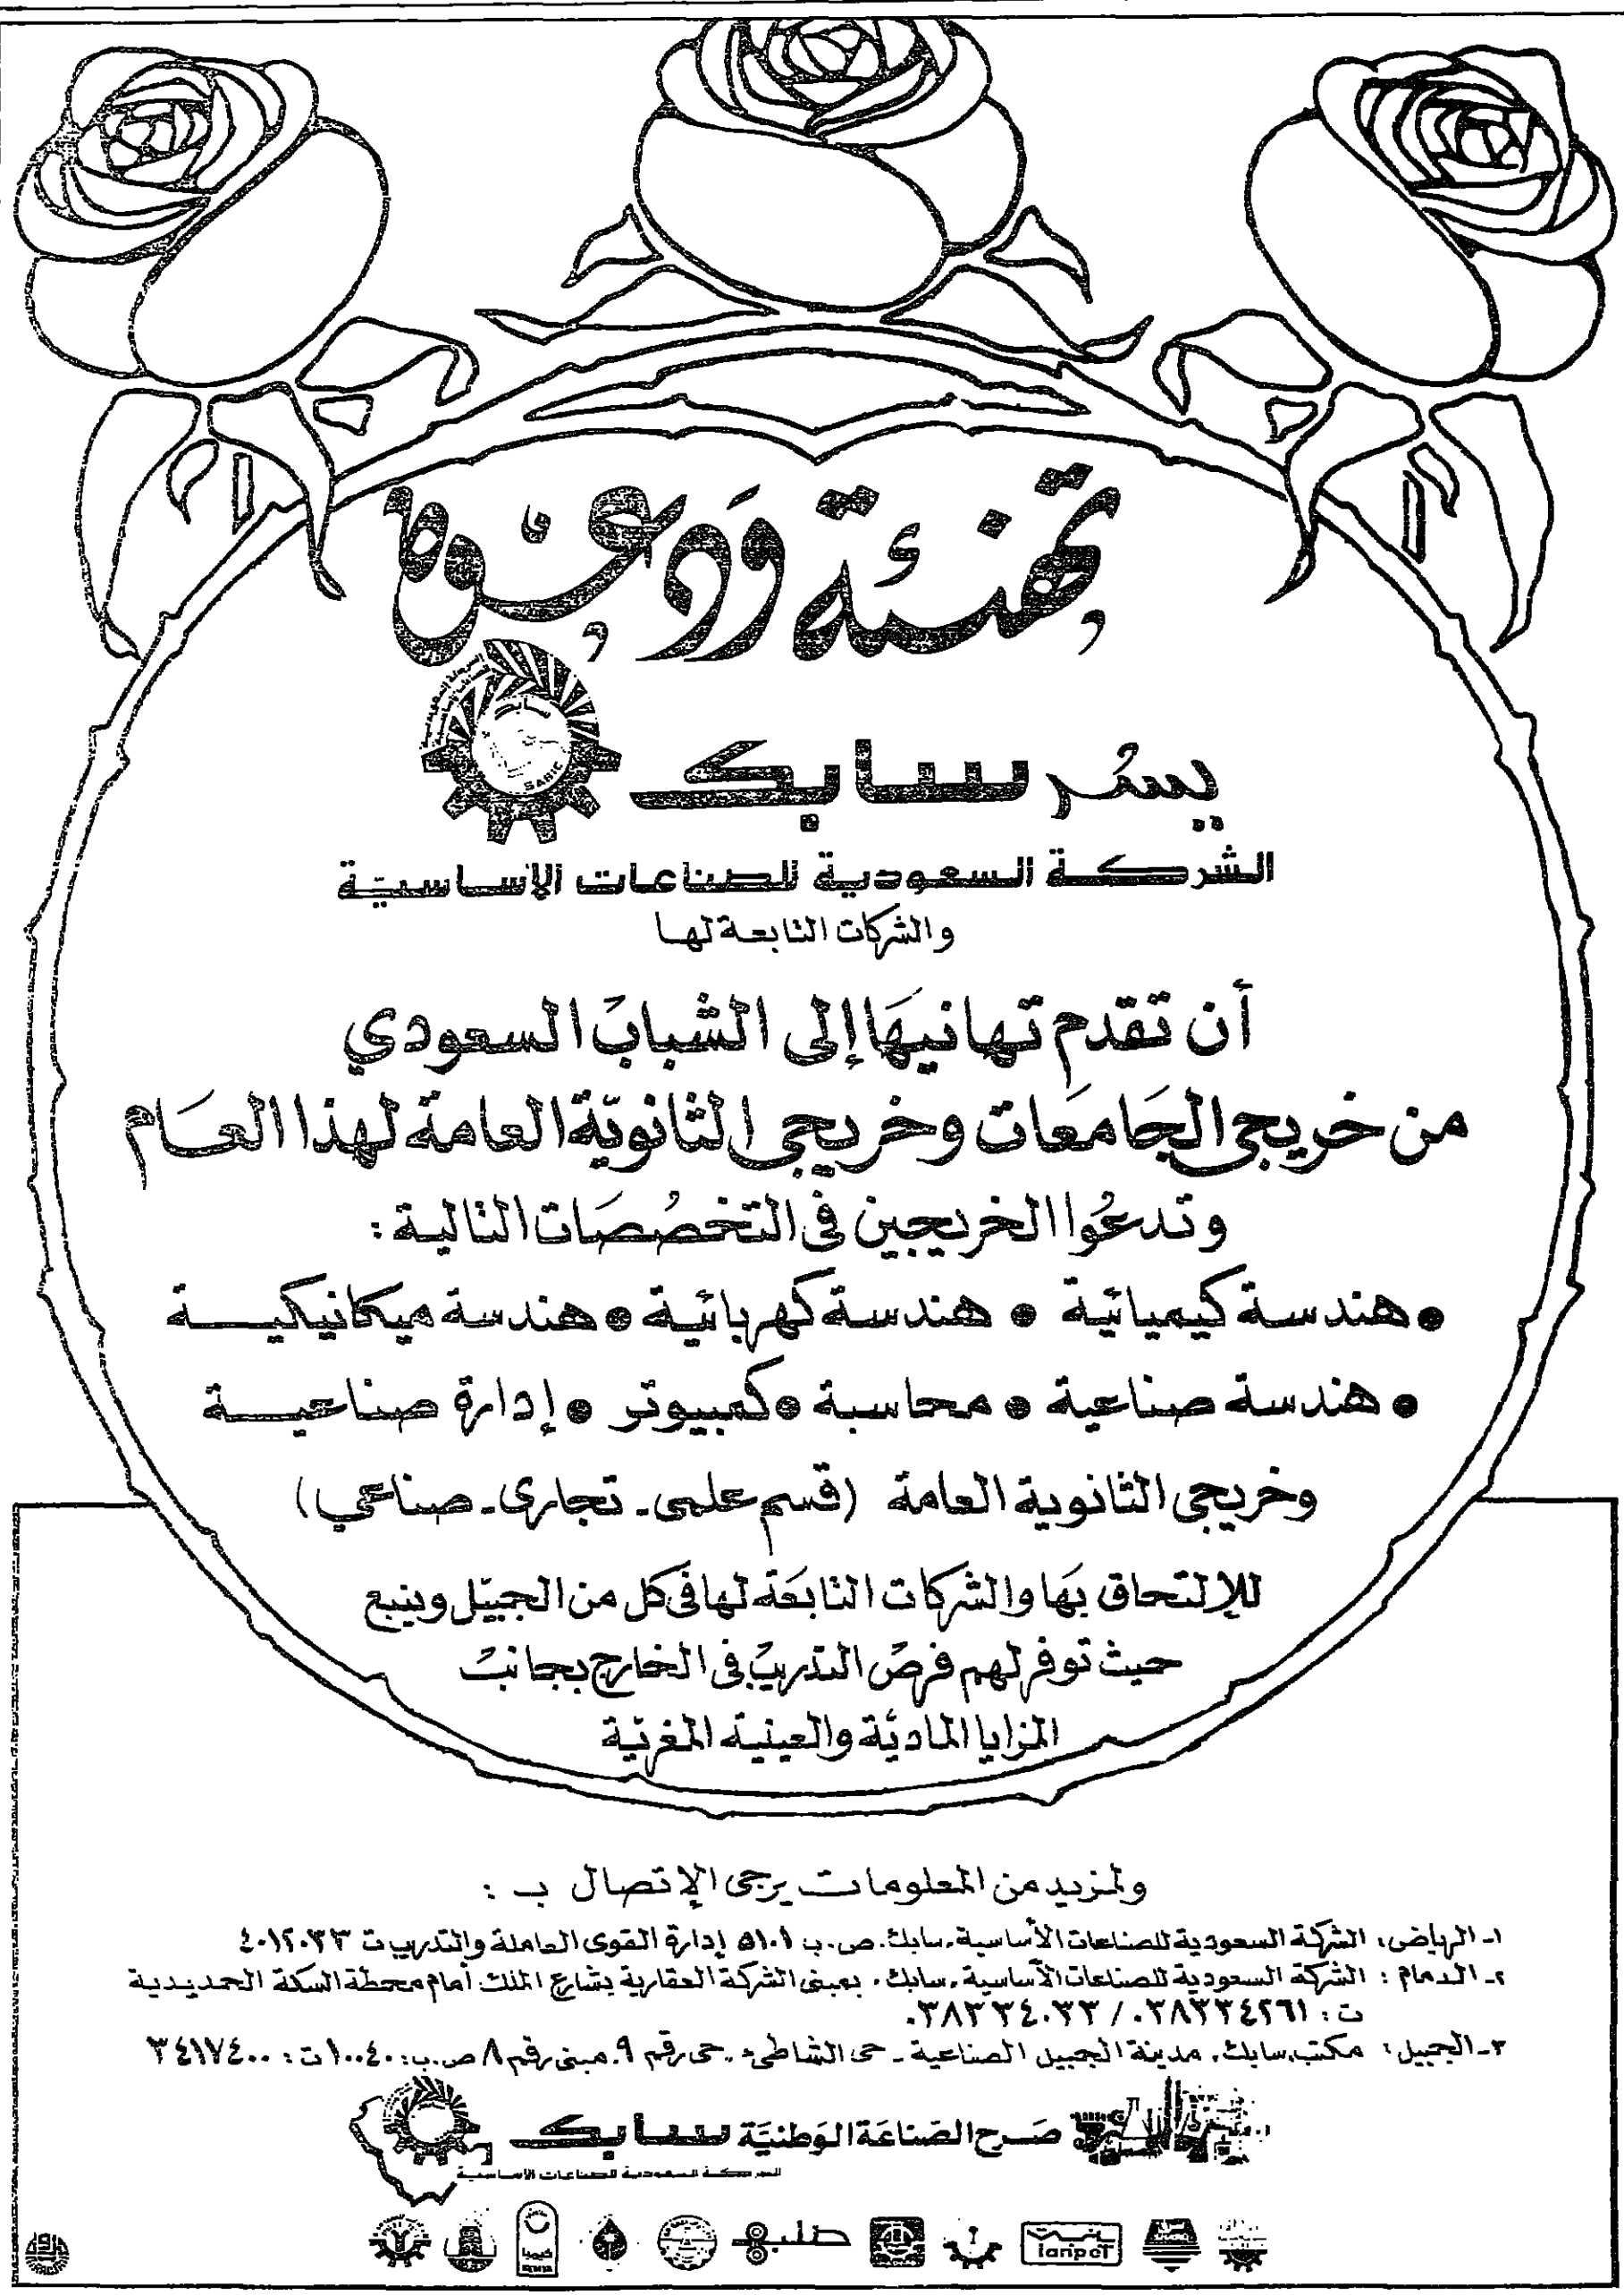 تهنئة ودعوة
يسر سابك
SABIC
الشركة السعودية للصناعات الأساسية
والشركات التابعة لها
أن تقدم تهانيها إلى الشباب السعودي
من خريجي الجامعات وخريجي الثانوية العامة لهذا العام
وتدعوا الخريجين في التخصصات التالية :
● هندسة كيميائية ● هندسة كهربائية ● هندسة ميكانيكية
● هندسة صناعية ● محاسبة ● كمبيوتر ● إدارة صناعية
وخريجي الثانوية العامة (قسم علمي - تجاري - صناعي)
للإلتحاق بها والشركات التابعة لها في كل من الجبيل وينبع
حيث توفر لهم فرص التدريب في الخارج بجانب
المزايا المادية والعينية المغرية
ولمزيد من المعلومات يرجى الإتصال ب :
١- الرياض : الشركة السعودية للصناعات الأساسية ، سابك . ص . ب ٥١٠١ إدارة القوى العاملة والتدريب ت ٤٠١٢٠٣٣
٢- الدمام : الشركة السعودية للصناعات الأساسية ، سابك . بمبنى الشركة العقارية بشارع الملك أمام محطة السكة الحديدية
ت : ٠٣٨٣٣٤٢٦١ / ٠٣٨٣٣٤٠٣٣
٣- الجبيل : مكتب سابك . مدينة الجبيل الصناعية - حي الشاطيء . حي رقم ٩ . مبنى رقم ٨ ص . ب : ١٠٠٤٠ ت : ٣٤١٧٤٠٠
صرح الصناعة الوطنية سابك
الشركة السعودية للصناعات الأساسية
صلب